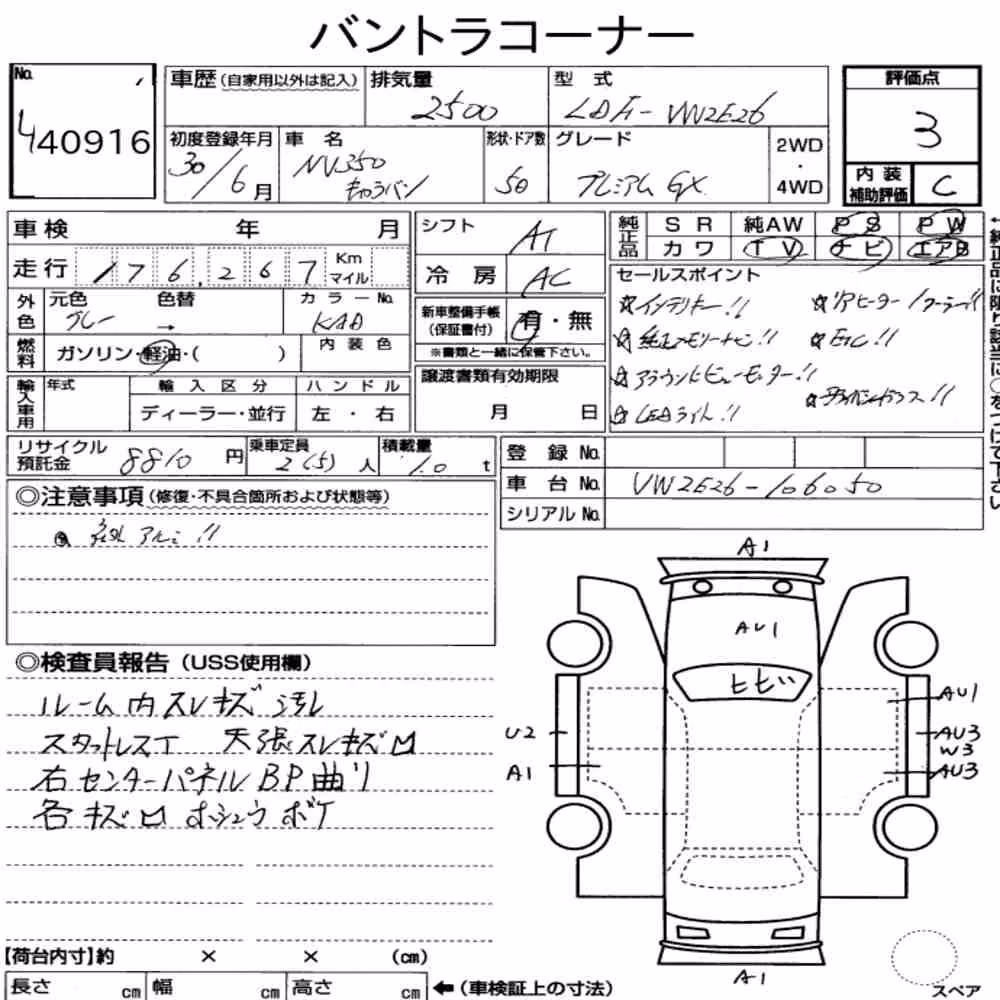 バントラコーナー
No. 40916
車歴(自家用以外は記入) 排気量 2500 型式 LDF-VW2E26
評価点 3
初度登録年月 30/6月 車名 NV350 キャラバン 形状・ドア数 5D グレード プレミアム GX 2WD・4WD
内装補助評価 C
車検 年 月
走行 176,267 Km マイル
シフト AT
冷房 AC
純正品 SR 純AW PS PW
カワ TV ナビ エアB
外色 元色 グレー 色替 → カラーNo. KAD
燃料 ガソリン・軽油・( ) 内装色
輸入車用 年式 輸入区分 ハンドル
ディーラー・並行 左・右
新車整備手帳(保証書付) 有・無
※書類と一緒に保管下さい。
譲渡書類有効期限
月 日
セールスポイント
☆インテリキー!! ☆リアヒーター/クーラー!!
☆純正メモリーナビ!! ☆ETC!!
☆アラウンドビューモニター!!
☆LEDライト!!
←純正品に限り該当に○をつけて下さい
リサイクル預託金 8810円 乗車定員 2(5)人 積載量 1.0t
登録No.
車台No. VW2E26-106050
シリアルNo.
◎注意事項(修復・不具合箇所および状態等)
アルミ!!
◎検査員報告(USS使用欄)
ルーム内スレキズ 汚レ
スタットレスT 天張スレキズ凹
右センターパネルBP曲リ
各キズ凹 ホシュウ ボケ
A1
AU1
ヒビ
AU1
U2
AU3
W3
A1
AU3
A1
スペア
【荷台内寸】約 × × (cm)
長さ cm 幅 cm 高さ cm ←(車検証上の寸法)